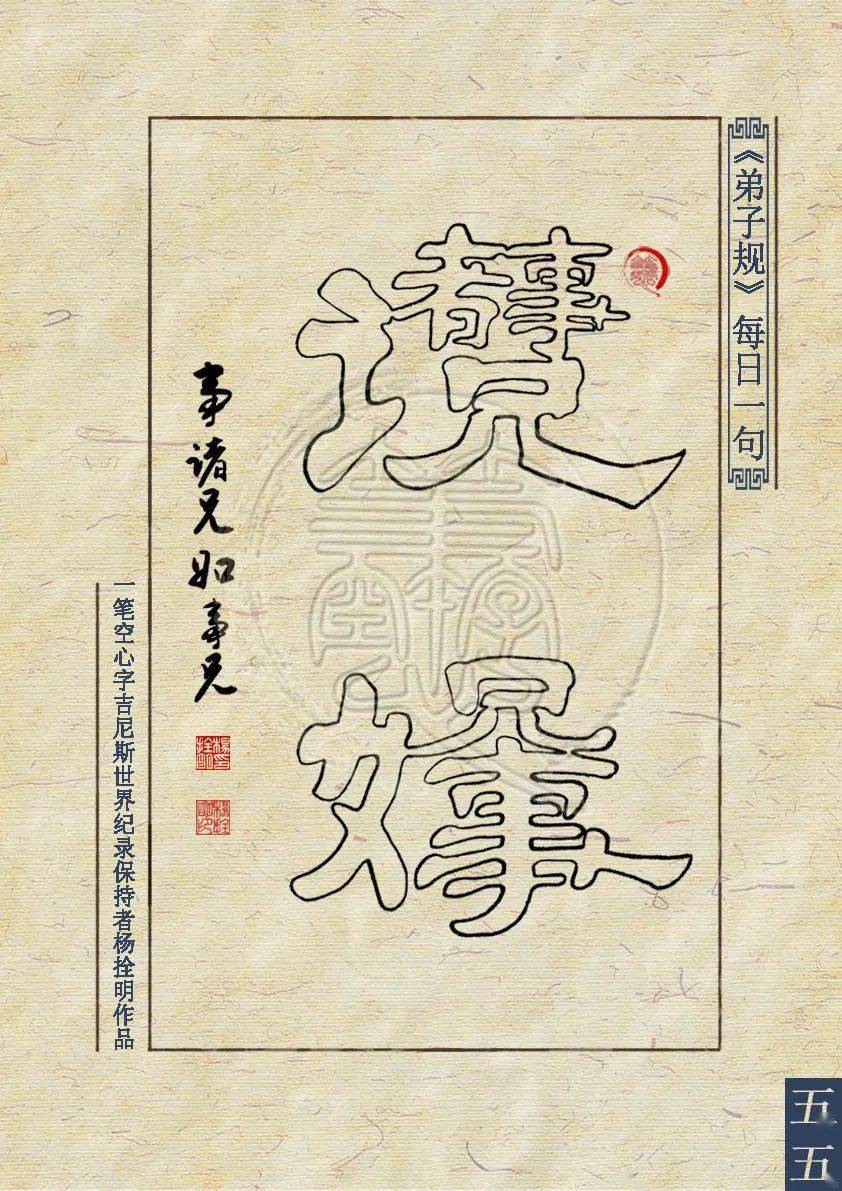 《弟子规》每日一句
事诸兄如事兄
一笔空心字吉尼斯世界纪录保持者杨拴明作品
五五